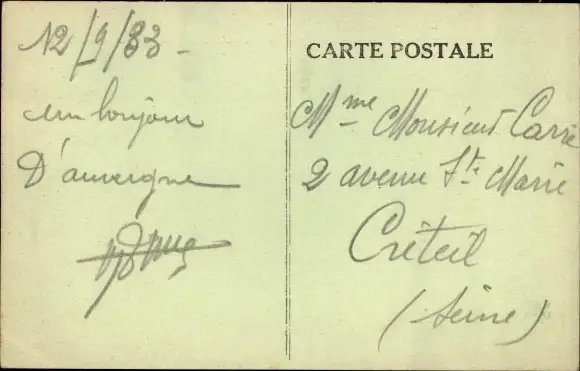 12/9/33 -
un bonjour
D'auvergne
CARTE POSTALE
Mme Monsieur Carré
2 avenue Ste Marie
Créteil
(Seine)